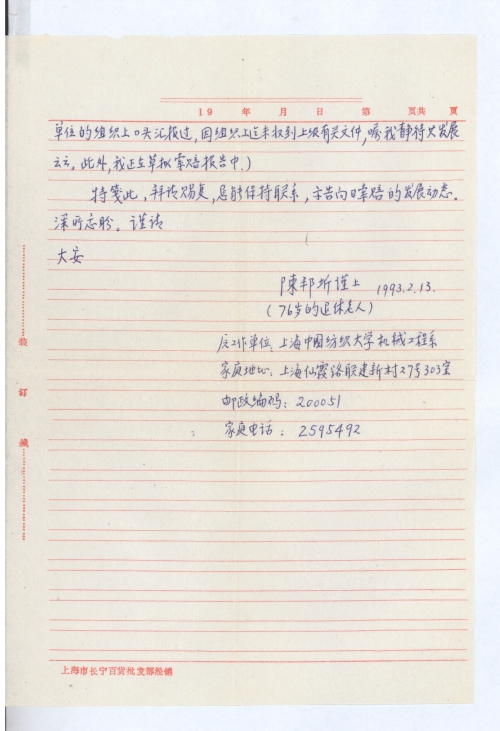 19 年 月 日 第 页共 页
单位的组织上口头汇报过，因组织上迄未收到上级有关文件，嘱我静待其发展
云云。此外，我正在草拟索赔报告中。）
特笺此，拜请赐复，恳能保持联系，示告向日索赔的发展动态。
深所忐盼。谨请
大安
陳邦圻谨上 1993.2.13.
（76岁的退休老人）
原工作单位：上海中国纺织大学机械工程系
家庭地址：上海仙霞路联建新村27号303室
邮政编码：200051
家庭电话：2595492
装
订
线
上海市长宁百货批发部经销